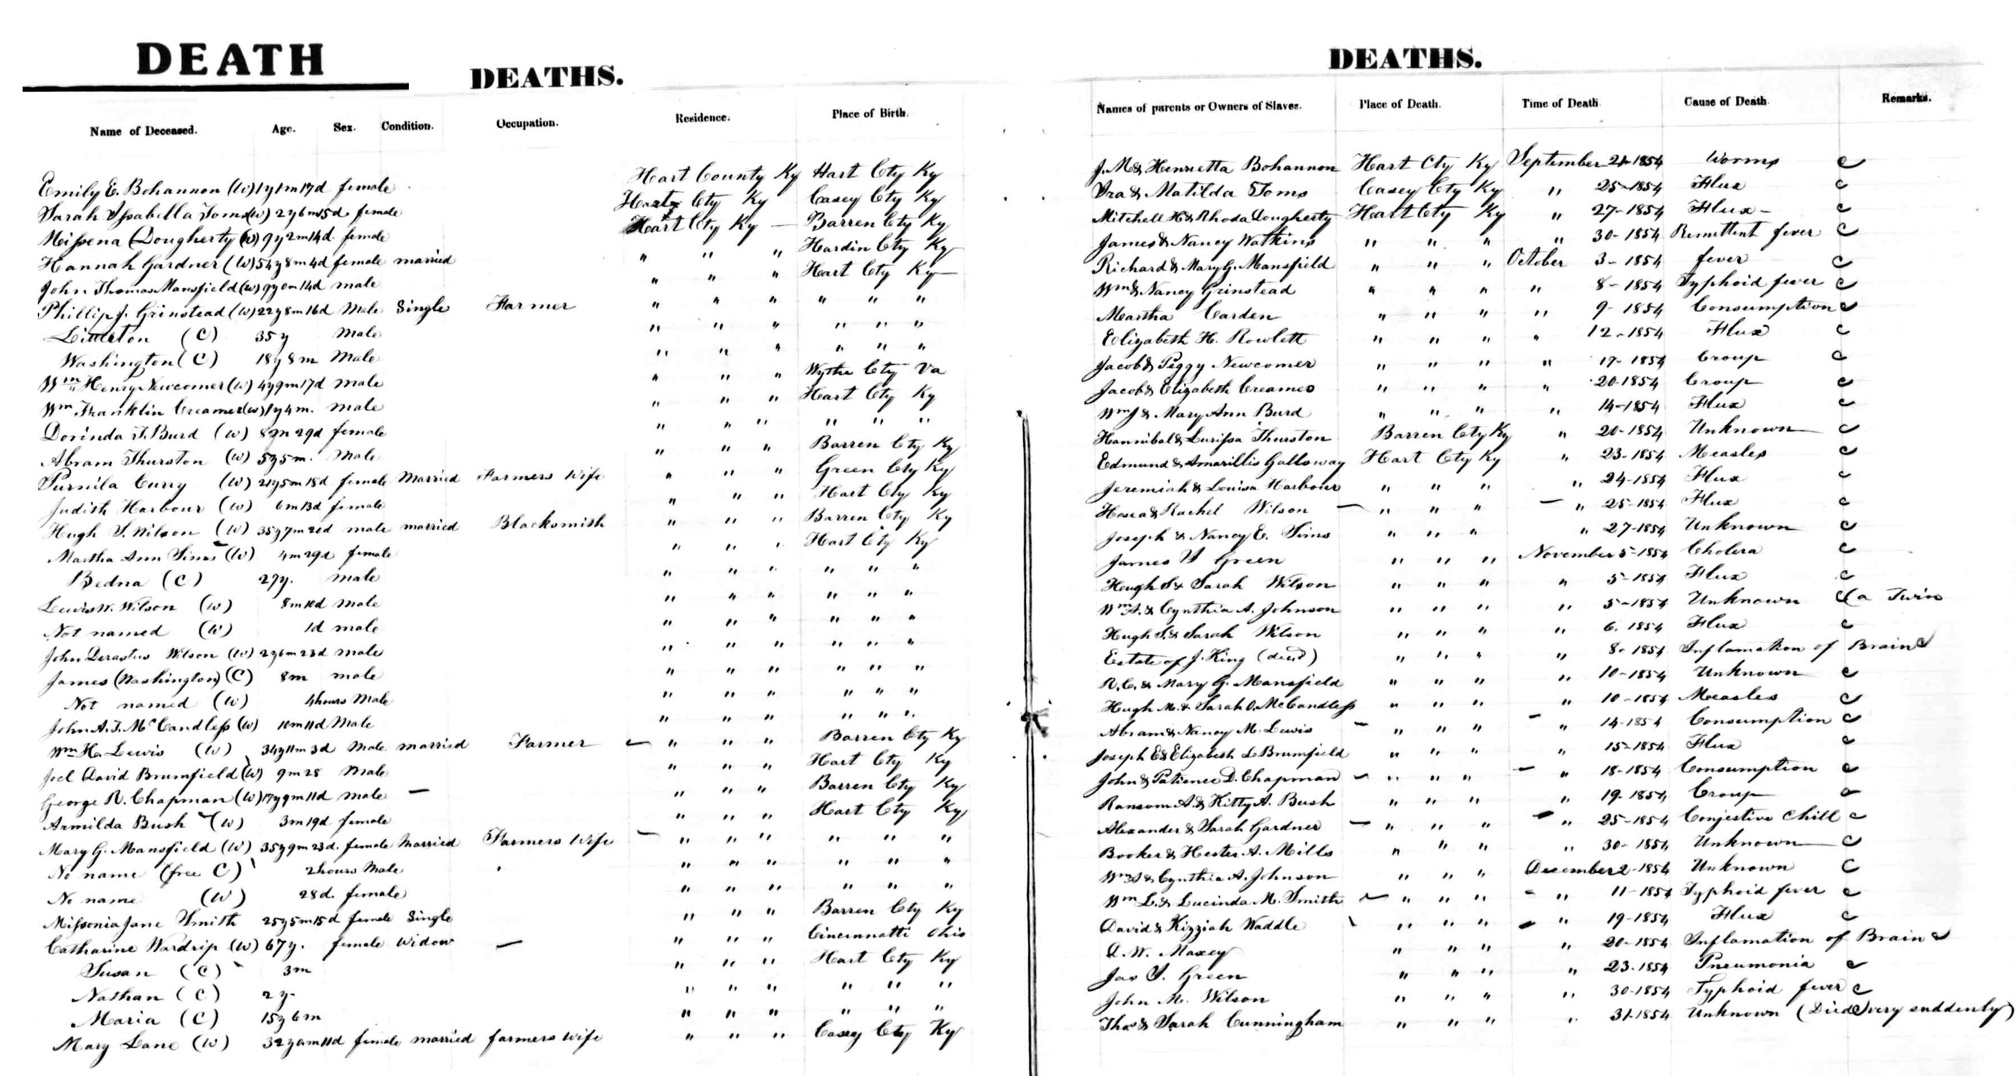 DEATH
DEATHS.
Name of Deceased. Age. Sex. Condition. Occupation. Residence. Place of Birth.
Emily E. Bohannon (W) 1y1m17d female Hart County Ky Hart Cty Ky
Sarah Isabella Toms (W) 2y6m15d female Hart Cty Ky Casey Cty Ky
Missena Dougherty (W) 9y2m14d female Hart Cty Ky — Barren Cty Ky
Hannah Gardner (W) 54y8m4d female married " " " Hardin Cty Ky
John Thomas Mansfield (W) 9y0m14d male " " " Hart Cty Ky
Phillip J. Grinstead (W) 22y8m16d Male Single Farmer " " " " " "
Littleton (C) 35y Male " " " " " "
Washington (C) 18y8m Male " " " " " "
Wm Henry Newcomer (W) 4y9m17d male " " " Wythe Cty Va
Wm Franklin Creamer (W) 1y4m. Male " " " Hart Cty Ky
Dorinda J. Burd (W) 8m29d female " " " " " "
Abram Thurston (W) 5y5m. Male " " " Barren Cty Ky
Purnila Curry (W) 21y5m18d female Married Farmers Wife " " " Green Cty Ky
Judith Harbour (W) 6m13d female " " " Hart Cty Ky
Hugh S. Wilson (W) 35y7m20d male married Blacksmith " " " Barren Cty Ky
Martha Ann Sims (W) 4m29d female " " " Hart Cty Ky
Bedna (C) 27y. male " " " " " "
Lewis W. Wilson (W) 8m10d Male " " " " " "
Not named (W) 1d male " " " " " "
John Derastus Wilson (W) 2y6m23d male " " " " " "
James (Washington) (C) 8m male " " " " " "
Not named (W) 4hours Male " " " " " "
John A. J. McCandless (W) 10m11d Male " " " " " "
Wm H. Lewis (W) 34y11m3d Male married Farmer " " " Barren Cty Ky
Joel David Brumfield (W) 9m28 Male " " " Hart Cty Ky
George R. Chapman (W) 17y9m11d Male — " " " Barren Cty Ky
Armilda Bush (W) 3m19d female " " " Hart Cty Ky
Mary G. Mansfield (W) 35y9m23d. female Married Farmers Wife — " " " " " "
No name (free C) 2hours Male " " " " " "
No name (W) 28d. female " " " " " "
Missonia Jane Smith 25y5m15d female Single " " " Barren Cty Ky
Catharine Wardrip (W) 67y. female Widow — " " " Cincinnatti Ohio
Susan (C) 3m " " " Hart Cty Ky
Nathan (C) 2y- " " " " " "
Maria (C) 15y6m " " " " " "
Mary Lane (W) 32y6m11d female married farmers wife " " " Casey Cty Ky
DEATHS.
Names of parents or Owners of Slaves. Place of Death. Time of Death. Cause of Death. Remarks.
J. M & Henrietta Bohannon Hart Cty Ky September 21-1854 Worms C
Ira & Matilda Toms Casey Cty Ky " 25-1854 Flux C
Mitchell H & Rhoda Dougherty Hart Cty Ky " 27-1854 Flux - C
James & Nancy Watkins " " " " 30-1854 Remittent fever C
Richard & Mary G. Mansfield " " " October 3-1854 fever C
Wm & Nancy Grinstead " " " " 8-1854 Typhoid fever C
Martha Carden " " " " 9-1854 Consumption C
Elizabeth H. Rowlett " " " " 12-1854 Flux C
Jacob & Peggy Newcomer " " " " 17-1854 Croup C
Jacob & Elizabeth Creamer " " " " 20-1854 Croup C
Wm J & Mary Ann Burd " " " " 14-1854 Flux C
Hannibal & Lurissa Thurston Barren Cty Ky " 20-1854 Unknown C
Edmund & Amarillis Galloway Hart Cty Ky " 23-1854 Measles C
Jeremiah & Louisa Harbour " " " " 24-1854 Flux C
Hosea & Rachel Wilson — " " " — " 25-1854 Flux C
Joseph & Nancy E. Sims " " " " 27-1854 Unknown C
James S Green " " " November 5-1854 Cholera C
Hugh S & Sarah Wilson " " " " 5-1854 Flux C
Wm A. & Cynthia A. Johnson " " " " 5-1854 Unknown C (a Twin
Hugh S. & Sarah Wilson " " " " 6. 1854 Flux C
Estate of J. King (decd) " " " " 8-1854 Inflamation of Brain C
R. C. & Mary G. Mansfield " " " " 10-1854 Unknown C
Hugh M. & Sarah O. McCandless " " " " 10-1854 Measles C
Abram & Nancy M. Lewis — " " " — " 14-1854 Consumption C
Joseph E & Elizabeth L Brumfield " " " " 15-1854 Flux C
John & Patience D. Chapman — " " " — " 18-1854 Consumption C
Ransom A. & Kitty A. Bush " " " " 19-1854 Croup C
Alexander & Sarah Gardner — " " " — " 25-1854 Conjestive Chill C
Booker & Hester A. Mills " " " " 30-1854 Unknown C
Wm A & Cynthia A. Johnson " " " December 2-1854 Unknown C
Wm L. & Lucinda M. Smith — " " " - " 11-1854 Typhoid fever C
David & Kizziah Waddle " " " - " 19-1854 Flux C
A. W. Maxey " " " " 20-1854 Inflamation of Brain C
Jas S. Green " " " " 23-1854 Pneumonia C
John M. Wilson " " " " 30-1854 Typhoid fever C
Thos & Sarah Cunningham " " " " 31-1854 Unknown (Died very suddenly)